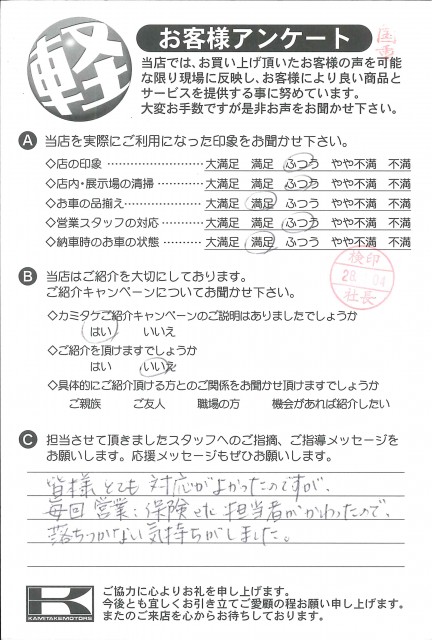 軽
お客様アンケート
当店では、お買い上げ頂いたお客様の声を可能
な限り現場に反映し、お客様により良い商品と
サービスを提供する事に努めています。
大変お手数ですが是非お声をお聞かせ下さい。
A 当店を実際にご利用になった印象をお聞かせ下さい。
◇店の印象 ………………………… 大満足 満足 ふつう やや不満 不満
◇店内・展示場の清掃 …………… 大満足 満足 ふつう やや不満 不満
◇お車の品揃え…………………… 大満足 満足 ふつう やや不満 不満
◇営業スタッフの対応 …………… 大満足 満足 ふつう やや不満 不満
◇納車時のお車の状態 ………… 大満足 満足 ふつう やや不満 不満
検印
28. 04
社長
B 当店はご紹介を大切にしてあります。
ご紹介キャンペーンについてお聞かせ下さい。
◇カミタケご紹介キャンペーンのご説明はありましたでしょうか
はい いいえ
◇ご紹介を頂けますでしょうか
はい いいえ
◇具体的にご紹介頂ける方とのご関係をお聞かせ頂けますでしょうか
ご親族 ご友人 職場の方 機会があれば紹介したい
C 担当させて頂きましたスタッフへのご指摘、ご指導メッセージを
お願いします。応援メッセージもぜひお願いします。
皆様とても対応がよかったのですが、
毎回営業:保険 担当者がかわったので、
落ちつかない気持ちがしました。
K
KAMITAKE MOTORS
ご協力に心よりお礼を申し上げます。
今後とも宜しくお引き立てご愛顧の程お願い申し上げます。
またのご来店を心からお待ちしております。